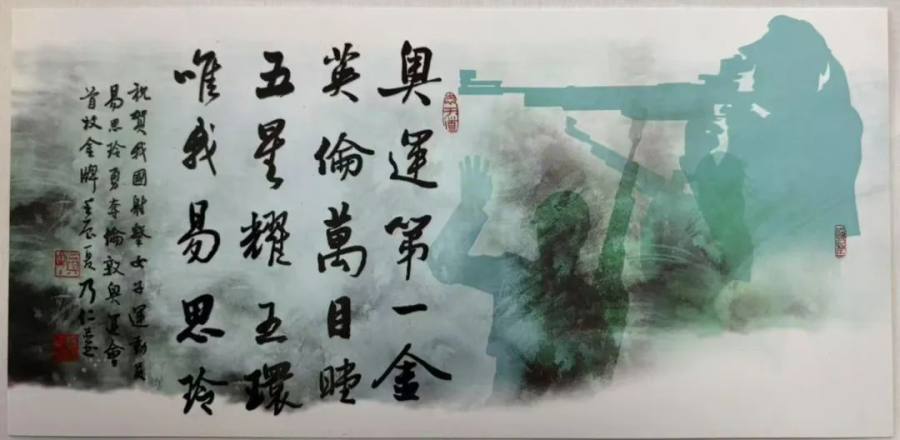 奥運第一金
英倫萬目睦
五星耀五環
唯我易思玲
祝賀我國射擊女子運動員
易思玲勇奪倫敦奧運會
首枚金牌壬辰夏乃仁並